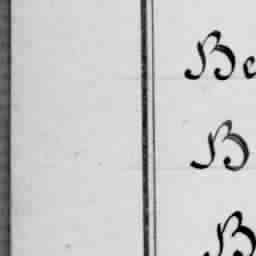 Be
B
B